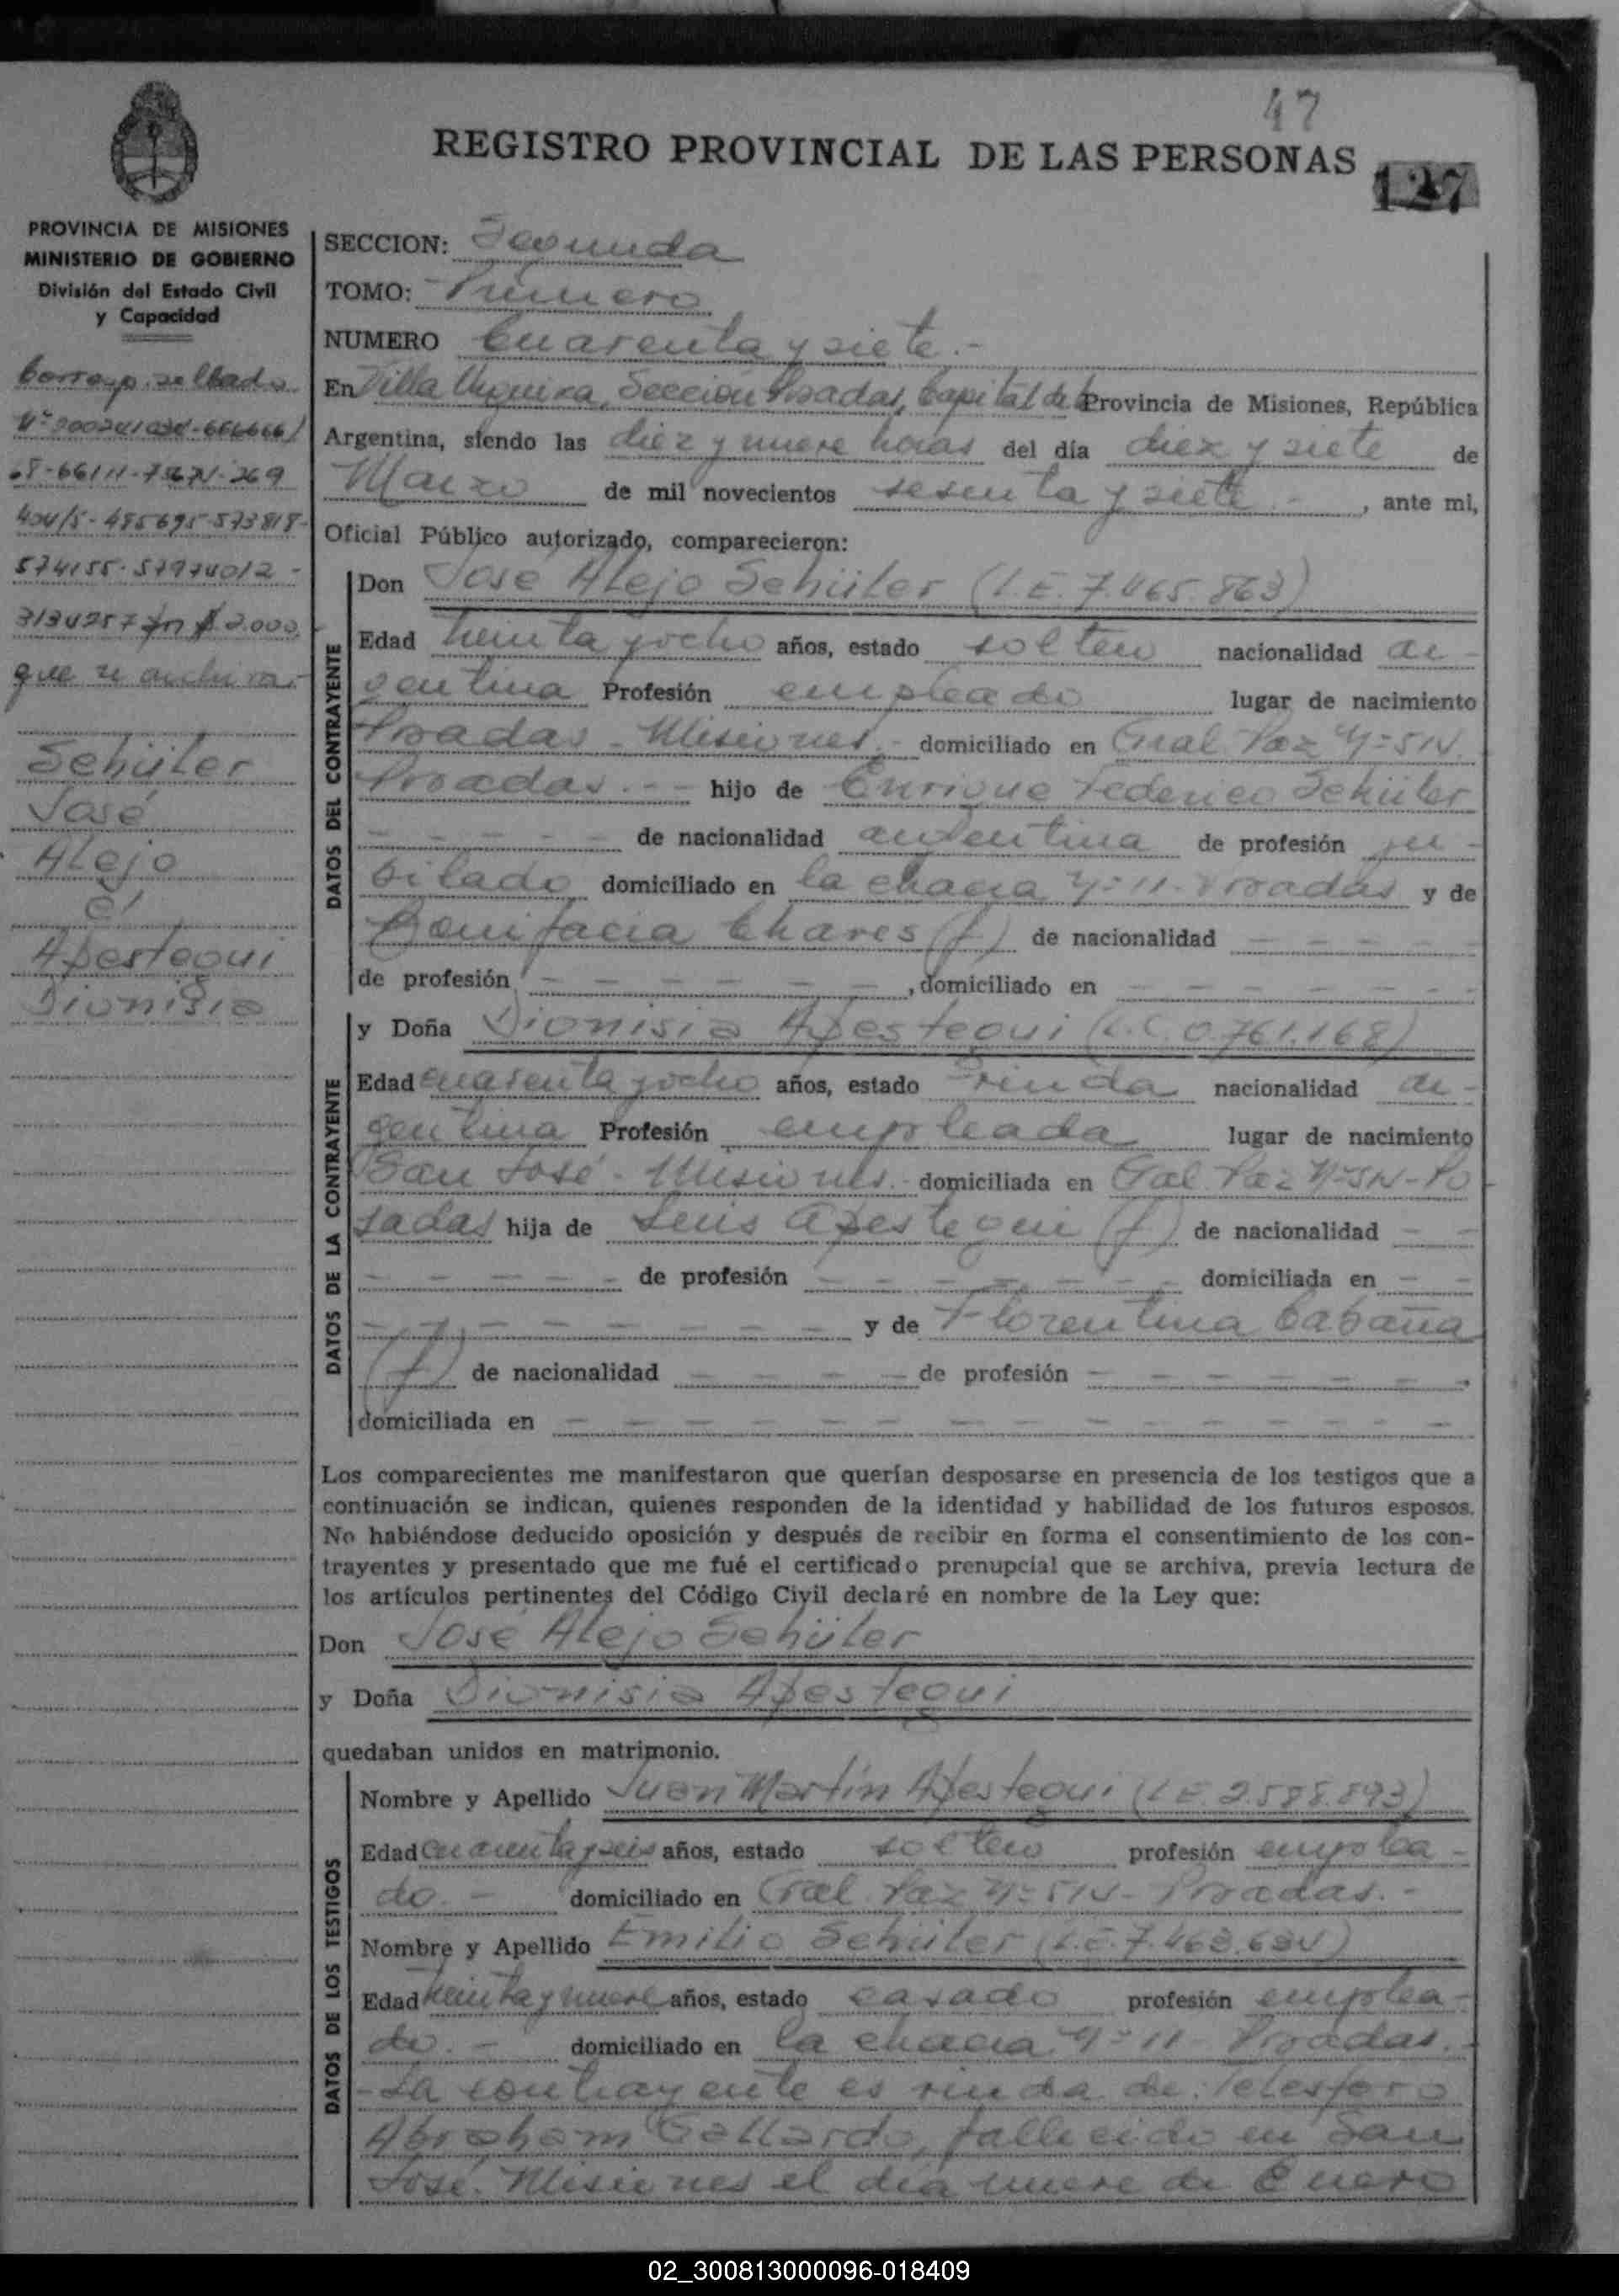 47
REGISTRO PROVINCIAL DE LAS PERSONAS
127
PROVINCIA DE MISIONES
MINISTERIO DE GOBIERNO
División del Estado Civil
y Capacidad
que se archiva.
Schüler
José
Alejo
c/
Apestegui
Dionisia
SECCION: Segunda
TOMO: Primero
NUMERO Cuarenta y siete.-
En Villa Urquiza, Sección Posadas, Capital de la Provincia de Misiones, República
Argentina, siendo las diez y nueve horas del día diez y siete de
Marzo de mil novecientos sesenta y siete.-, ante mi,
Oficial Público autorizado, comparecieron:
DATOS DEL CONTRAYENTE
Don José Alejo Schüler (L.E. 7.465.863)
Edad treinta y ocho años, estado soltero nacionalidad ar-
gentina Profesión empleado lugar de nacimiento
Posadas - Misiones.- domiciliado en Gral Paz Nº S/N.
Posadas.-- hijo de Enrique Federico Schüler
- - - - - - de nacionalidad argentina de profesión ju-
bilado domiciliado en la chacra Nº 11-Posadas y de
Bonifacia Chaves (f) de nacionalidad - - - - -
de profesión - - - - - -, domiciliado en - - - - - -
DATOS DE LA CONTRAYENTE
y Doña Dionisia Apestegui (L.C. 0.761.168)
Edad cuarenta y ocho años, estado viuda nacionalidad ar-
gentina Profesión empleada lugar de nacimiento
San José - Misiones.- domiciliada en Gral. Paz Nº S/N-Po
sadas hija de Luis Apestegui (f) de nacionalidad - -
- - - - - de profesión - - - - - - domiciliada en - -
- - - - - - - - y de Florentina Cabaña
(f) de nacionalidad - - - - de profesión - - - - - -,
domiciliada en - - - - - - - - - - - - - -
Los comparecientes me manifestaron que querían desposarse en presencia de los testigos que a
continuación se indican, quienes responden de la identidad y habilidad de los futuros esposos.
No habiéndose deducido oposición y después de recibir en forma el consentimiento de los con-
trayentes y presentado que me fué el certificado prenupcial que se archiva, previa lectura de
los artículos pertinentes del Código Civil declaré en nombre de la Ley que:
Don José Alejo Schüler
y Doña Dionisia Apestegui
quedaban unidos en matrimonio.
DATOS DE LOS TESTIGOS
Nombre y Apellido Juan Martín Apestegui (L.E. 2.588.893)
Edad cuarenta y seis años, estado soltero profesión emplea-
do.- domiciliado en Gral. Paz Nº S/N - Posadas.-
Nombre y Apellido Emilio Schüler (L.E. 7.463.634)
Edad treinta y nueve años, estado casado profesión emplea-
do.- domiciliado en la chacra Nº 11 - Posadas.-
-La contrayente es viuda de: Telesforo
Abraham Gallardo, fallecido en San
José. Misiones el día nueve de Enero
02_300813000096-018409